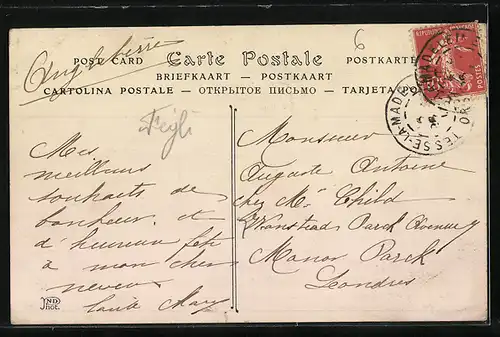 Angleterre
6
POST CARD Carte Postale POSTKARTE
BRIEFKAART — POSTKAART
CARTOLINA POSTALE — ОТКРЫТОЕ ПИСЬМО — TARJETA PO
Mes
meilleurs
souhaits de
bonheur et
d'heureuse fête
à mon cher
neveu
tante Mary
ND
Phot.
Monsieur
Auguste Antoine
chez Mr Child
Wanstead Park Avenue
Manor Park
Londres
TESSE-LA-MADE
POSTES